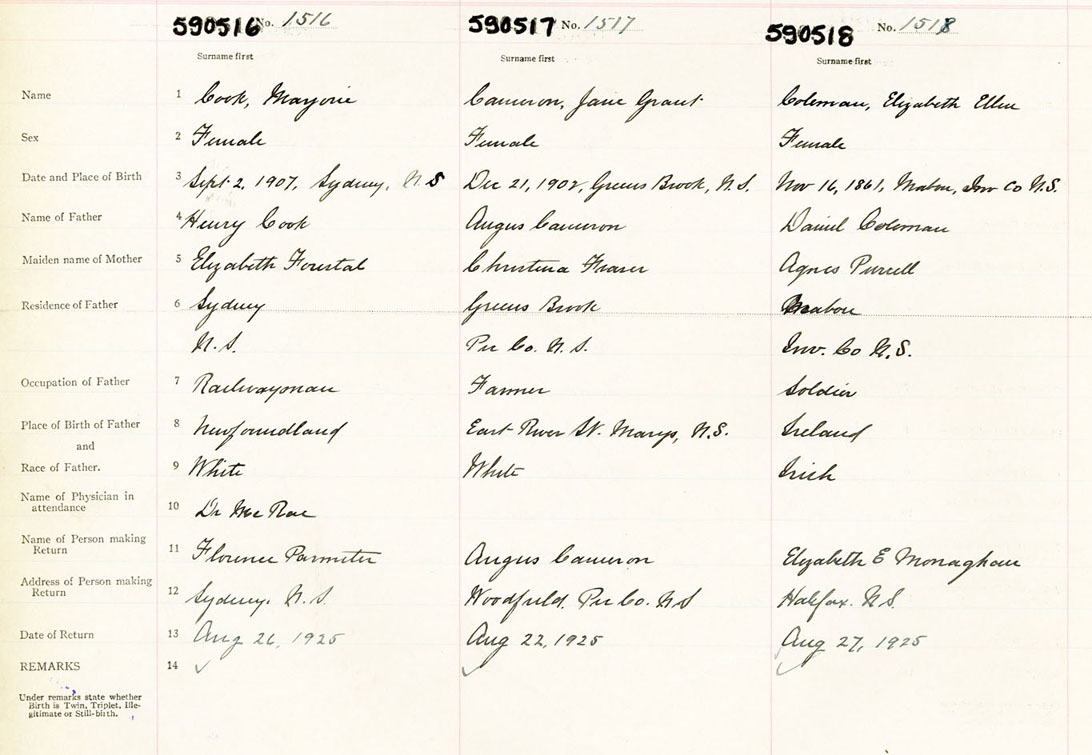 590516 No. 1516 590517 No. 1517 590518 No. 1518
Surname first Surname first Surname first
Name 1 Cook, Marjorie Cameron, Jane Grant Coleman, Elizabeth Ellen
Sex 2 Female Female Female
Date and Place of Birth 3 Sept 2, 1907, Sydney, N.S Dec 21, 1902, Greens Brook, N.S. Nov 16, 1861, Mabou, Inv Co N.S.
Name of Father 4 Henry Cook Angus Cameron Daniel Coleman
Maiden name of Mother 5 Elizabeth Forestal Christina Fraser Agnes Purcell
Residence of Father 6 Sydney Greens Brook Mabou
N.S. Pic Co. N.S. Inv. Co N.S.
Occupation of Father 7 Railwayman Farmer Soldier
Place of Birth of Father 8 Newfoundland East River St. Marys, N.S. Ireland
and
Race of Father. 9 White White Irich
Name of Physician in
attendance 10 Dr McRae
Name of Person making
Return 11 Florence Parmiter Angus Cameron Elizabeth E Monaghan
Address of Person making
Return 12 Sydney. N.S. Woodfield. Pic Co. N S Halifax. N.S.
Date of Return 13 Aug 26, 1925 Aug 22, 1925 Aug 27, 1925
REMARKS 14 ✓ ✓ ✓
Under remarks state whether
Birth is Twin, Triplet, Ille-
gitimate or Still-birth.